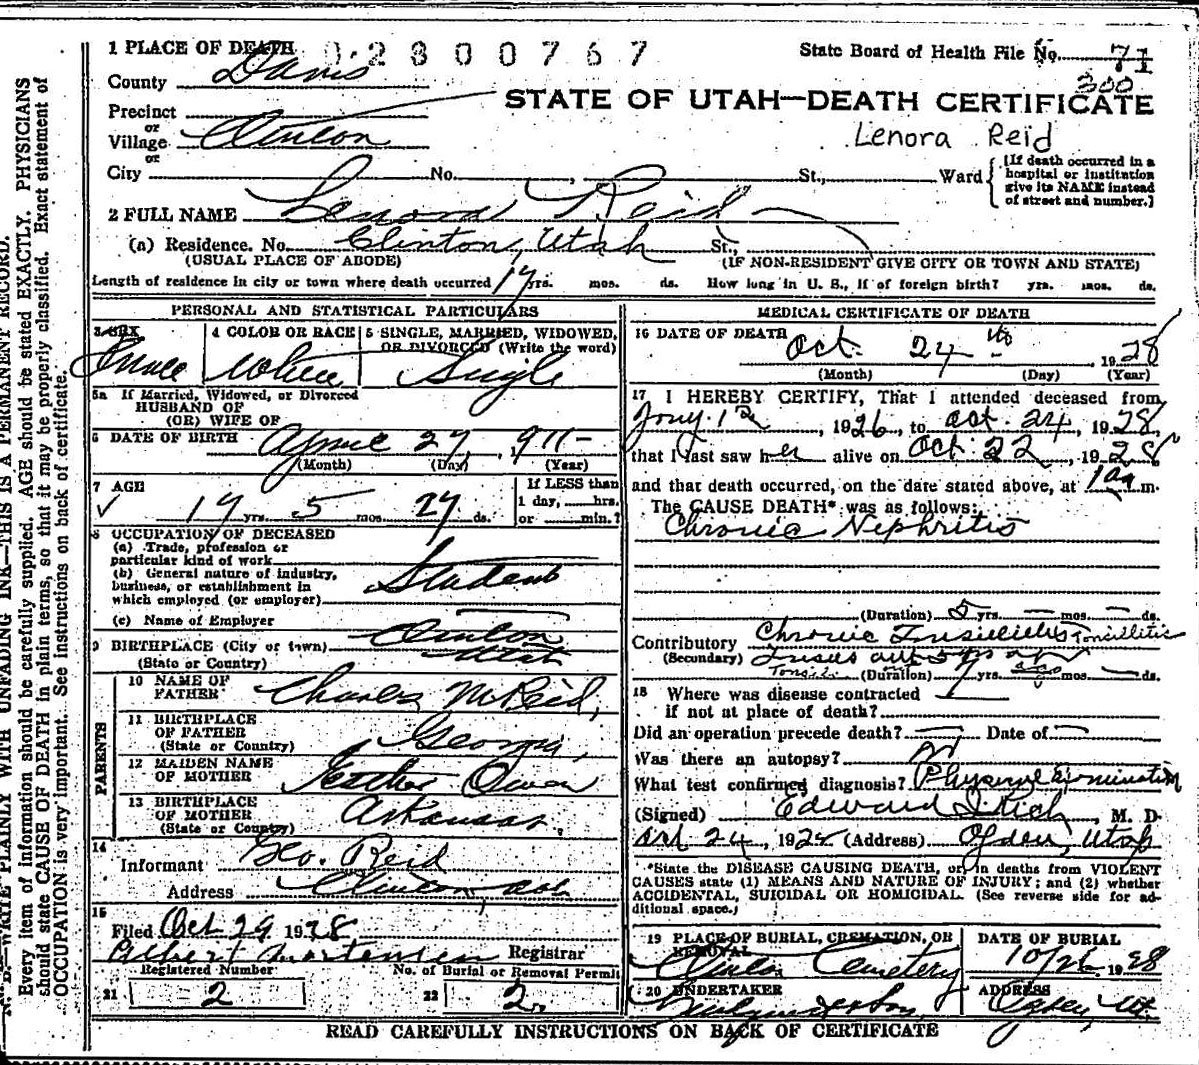 1 PLACE OF DEATH 0 2 8 0 0 7 6 7
State Board of Health File No. 71
300
County Davis
STATE OF UTAH—DEATH CERTIFICATE
Precinct
or
Village Clinton
Lenora Reid
or
City No. , St., Ward
(If death occurred in a
hospital or institution
give its NAME instead
of street and number.)
2 FULL NAME Lenora Reid
(a) Residence. No. Clinton, Utah St.
(USUAL PLACE OF ABODE) (IF NON-RESIDENT GIVE CITY OR TOWN AND STATE)
Length of residence in city or town where death occurred 17 yrs. mos. ds. How long in U. S., if of foreign birth? yrs. mos. ds.
PERSONAL AND STATISTICAL PARTICULARS
3 SEX 4 COLOR OR RACE 5 SINGLE, MARRIED, WIDOWED,
OR DIVORCED (Write the word)
White Single
5a If Married, Widowed, or Divorced
HUSBAND OF
(OR) WIFE OF
6 DATE OF BIRTH April 27, 1911-
(Month) (Day) (Year)
7 AGE
17 yrs. 5 mos. 27 ds.
If LESS than
1 day, hrs.
or min.?
8 OCCUPATION OF DECEASED
(a) Trade, profession or
particular kind of work
(b) General nature of industry,
business, or establishment in
which employed (or employer)
Student
(c) Name of Employer
9 BIRTHPLACE (City or town) Clinton
(State or Country) Utah
PARENTS
10 NAME OF
FATHER Charles M Reid,
11 BIRTHPLACE
OF FATHER
(State or Country) Georgia,
12 MAIDEN NAME
OF MOTHER Esther Owen
13 BIRTHPLACE
OF MOTHER
(State or Country) Arkansas,
14
Informant Geo. Reid
Address Clinton
15
Filed Oct 29 1928
Albert Mortensen Registrar
Registered Number No. of Burial or Removal Permit
21 2 22 2.
MEDICAL CERTIFICATE OF DEATH
16 DATE OF DEATH
Oct. 24 th 1928
(Month) (Day) (Year)
17 I HEREBY CERTIFY, That I attended deceased from
, 1926, to Oct. 24, 1928,
that I last saw her alive on Oct. 22, 1928
and that death occurred, on the date stated above, at 1 a m.
The CAUSE DEATH* was as follows:
Chronic Nephritis
(Duration) 5 yrs. — mos. — ds.
Contributory Chronic Tonsillitis Tonsillitis
(Secondary) out 5 yrs ago
(Duration) yrs. mos. ds.
18 Where was disease contracted
if not at place of death?
Did an operation precede death? — Date of —
Was there an autopsy?
What test confirmed diagnosis?
(Signed) Edward , M. D.
Oct 24, 1928 (Address) Ogden, Utah
*State the DISEASE CAUSING DEATH, or, in deaths from VIOLENT
CAUSES state (1) MEANS AND NATURE OF INJURY; and (2) whether
ACCIDENTAL, SUICIDAL OR HOMICIDAL. (See reverse side for ad-
ditional space.)
19 PLACE OF BURIAL, CREMATION, OR
REMOVAL
DATE OF BURIAL
Clinton Cemetery 10/26 1928
20 UNDERTAKER ADDRESS
Ogden, Ut.
READ CAREFULLY INSTRUCTIONS ON BACK OF CERTIFICATE
N. B.—WRITE PLAINLY WITH UNFADING INK—THIS IS A PERMANENT RECORD.
Every item of information should be carefully supplied. AGE should be stated EXACTLY. PHYSICIANS
should state CAUSE OF DEATH in plain terms, so that it may be properly classified. Exact statement of
OCCUPATION is very important. See instructions on back of certificate.